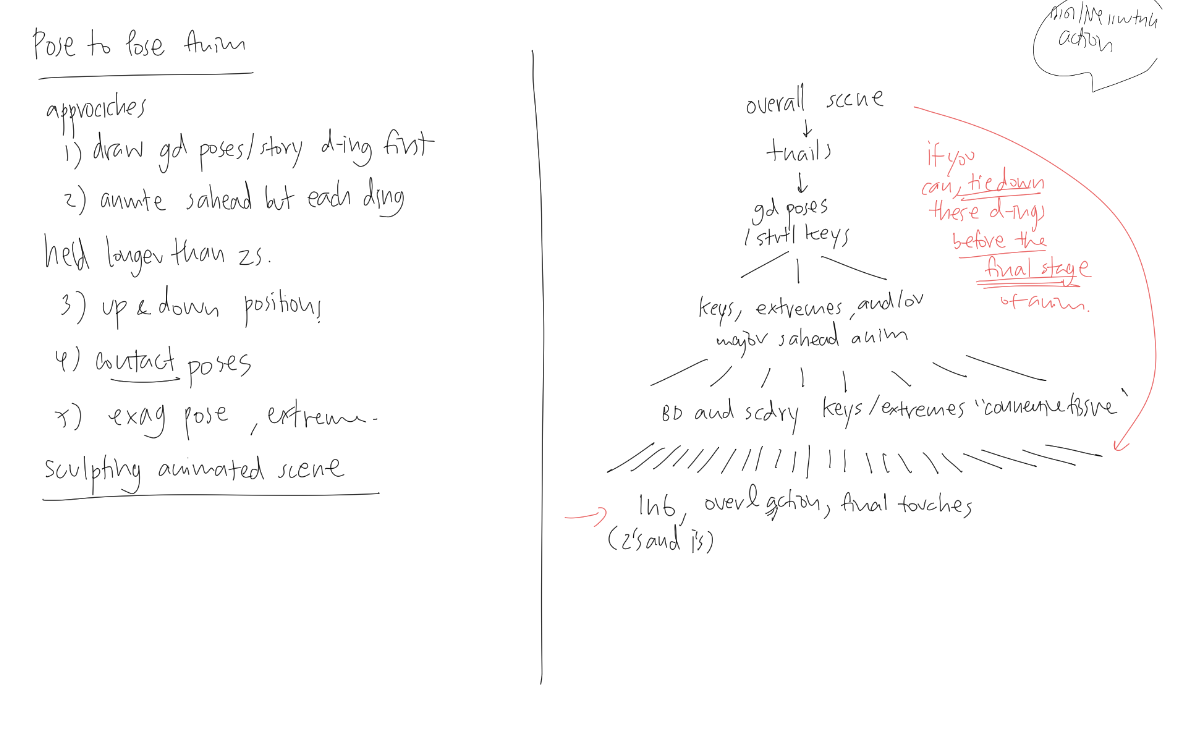 Pose to Pose Anim
approaches
1) draw gd poses/story d-ing first
2) anmte sahead but each ding
held longer than 2s.
3) up & down positions
4) contact poses
5) exag pose, extreme.
sculpting animated scene
action
overall scene
tnails
gd poses
/strtl keys
keys, extremes, and/or
major sahead anim
BD and scdry keys/extremes "connective tissue"
Inb, overl action, final touches
(2's and 1's)
if you
can, tiedown
these d-ings
before the
final stage
of anim.